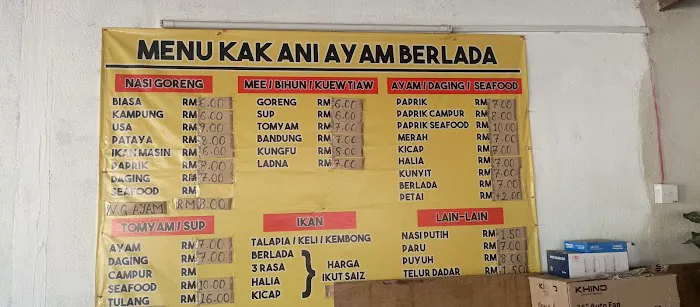 MENU KAK ANI AYAM BERLADA
NASI GORENG
BIASA RM 6.00
KAMPUNG RM 6.00
USA RM 7.00
PATAYA RM 8.00
IKAN MASIN RM 6.00
PAPRIK RM 8.00
DAGING RM 7.00
SEAFOOD RM
N.G. AYAM RM 8.00
MEE / BIHUN / KUEWTIAW
GORENG RM 6.00
SUP RM 6.00
TOMYAM RM 7.00
BANDUNG RM 7.00
KUNGFU RM 8.00
LADNA RM 7.00
AYAM / DAGING / SEAFOOD
PAPRIK RM 7.00
PAPRIK CAMPUR RM 8.00
PAPRIK SEAFOOD RM 10.00
MERAH RM 7.00
KICAP RM 7.00
HALIA RM 7.00
KUNYIT RM 7.00
BERLADA RM 7.00
PETAI RM +2.00
TOMYAM / SUP
AYAM RM 7.00
DAGING RM 7.00
CAMPUR RM
SEAFOOD RM 10.00
TULANG RM 16.00
IKAN
TALAPIA / KELI / KEMBONG
BERLADA
3 RASA
HALIA
KICAP
HARGA
IKUT SAIZ
LAIN-LAIN
NASI PUTIH RM 1.50
PARU RM 7.00
PUYUH RM 8.00
TELUR DADAR RM 1.50
KHIND
16" Auto Fan